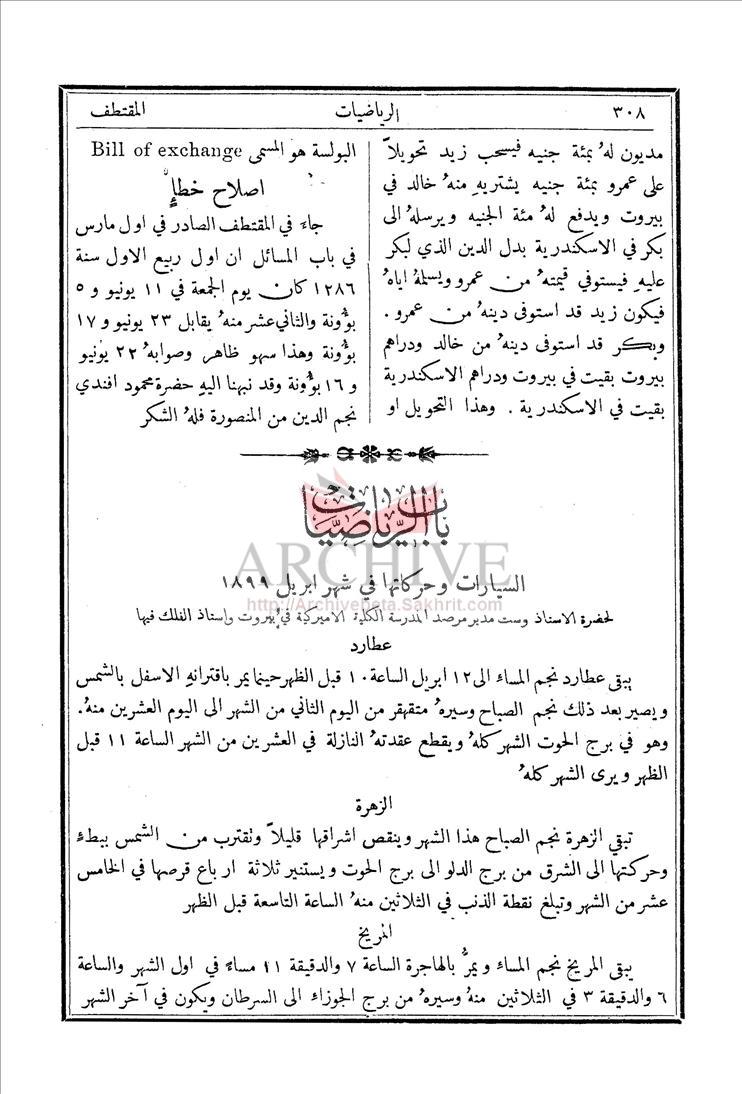 ٣٠٨ الرياضيات المقتطف
مديون لهُ بمئة جنيه فيسحب زيد تحويلاً
على عمرو بمئة جنيه يشتريهِ منهُ خالد في
بيروت ويدفع لهُ مئة الجنيه ويرسلهُ الى
بكر في الاسكندرية بدل الدين الذي لبكر
عليهِ فيستوفي قيمتهُ من عمرو ويسلمهُ اياهُ
فيكون زيد قد استوفى دينهُ من عمرو .
وبكر قد استوفى دينهُ من خالد ودراهم
بيروت بقيت في بيروت ودراهم الاسكندرية
بقيت في الاسكندرية . وهذا التحويل او
البولسة هو المسمى Bill of exchange
اصلاح خطإٍ
جاءَ في المقتطف الصادر في اول مارس
في باب المسائل ان اول ربيع الاول سنة
١٢٨٦ كان يوم الجمعة في ١١ يونيو و ٥
بؤُونة والثاني عشر منهُ يقابل ٢٣ يونيو و ١٧
بؤُونة وهذا سهو ظاهر وصوابهُ ٢٢ يونيو
و ١٦ بؤُونة وقد نبهنا اليهِ حضرة محمود افندي
نجم الدين من المنصورة فلهُ الشكر
باب الرياضيات
ARCHIVE
السيارات وحركاتها في شهر ابريل ١٨٩٩
http://Archivebeta.Sakhrit.com
لحضرة الاستاذ وست مدير مرصد المدرسة الكلية الاميركية في بيروت واستاذ الفلك فيها
عطارد
يبقى عطارد نجم المساء الى ١٢ ابريل الساعة ١٠ قبل الظهر حينما يمر باقترانهِ الاسفل بالشمس
ويصير بعد ذلك نجم الصباح وسيرهُ متقهقر من اليوم الثاني من الشهر الى اليوم العشرين منهُ.
وهو في برج الحوت الشهر كلهُ ويقطع عقدتهُ النازلة في العشرين من الشهر الساعة ١١ قبل
الظهر ويرى الشهر كلهُ
الزهرة
تبقى الزهرة نجم الصباح هذا الشهر وينقص اشراقها قليلاً وتقترب من الشمس ببطءٍ
وحركتها الى الشرق من برج الدلو الى برج الحوت ويستنير ثلاثة ارباع قرصها في الخامس
عشر من الشهر وتبلغ نقطة الذنب في الثلاثين منهُ الساعة التاسعة قبل الظهر
المريخ
يبقى المريخ نجم المساء ويمرُّ بالهاجرة الساعة ٧ والدقيقة ١١ مساءً في اول الشهر والساعة
٦ والدقيقة ٣ في الثلاثين منهُ وسيرهُ من برج الجوزاء الى السرطان ويكون في آخر الشهر